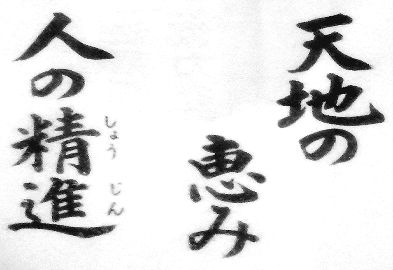 天地の
恵み
人の精進
しょうじん